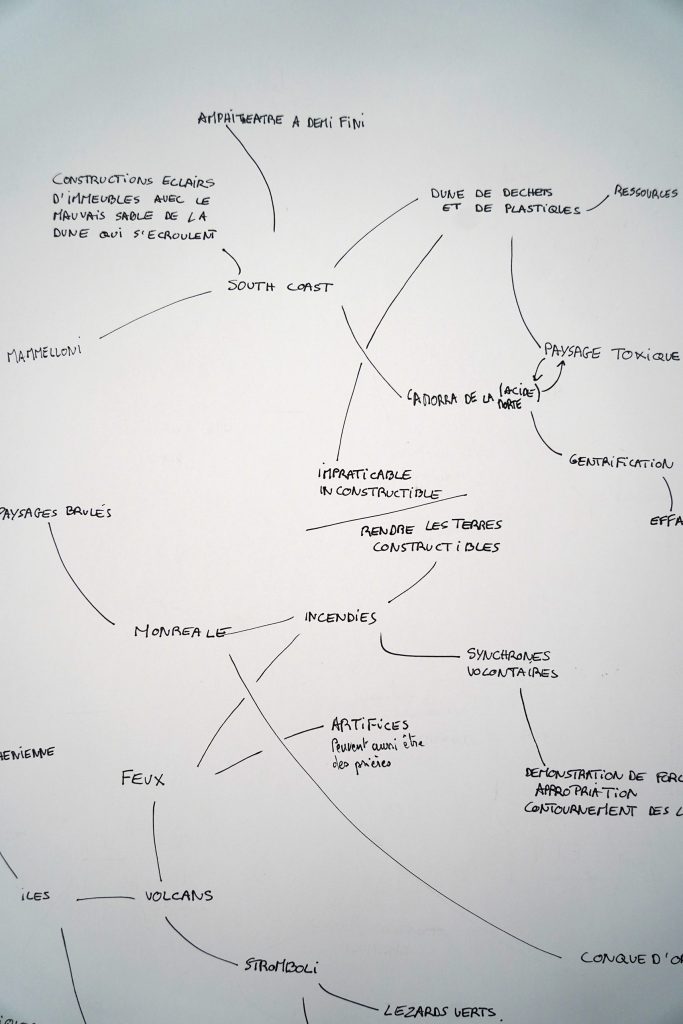 AMPHITEATRE A DEMI FINI
CONSTRUCTIONS ECLAIRS
D'IMMEUBLES AVEC LE
MAUVAIS SABLE DE LA
DUNE QUI S'ECROULENT
DUNE DE DECHETS
ET DE PLASTIQUES
RESSOURCES
SOUTH COAST
MAMMELLONI
PAYSAGE TOXIQUE
CAMORRA DE LA (ACIDE)
MORTE
GENTRIFICATION
IMPRATICABLE
INCONSTRUCTIBLE
EFFA
PAYSAGES BRULÉS
RENDRE LES TERRES
CONSTRUCTIBLES
INCENDIES
MONREALE
SYNCHRONES
VOLONTAIRES
ARTIFICES
Peuvent aussi être
des prières
HENIENNE
FEUX
DEMONSTRATION DE FORC
APPROPRIATION
CONTOURNEMENT DES L
ILES
VOLCANS
STROMBOLI
CONQUE D'OR
LEZARDS VERTS.